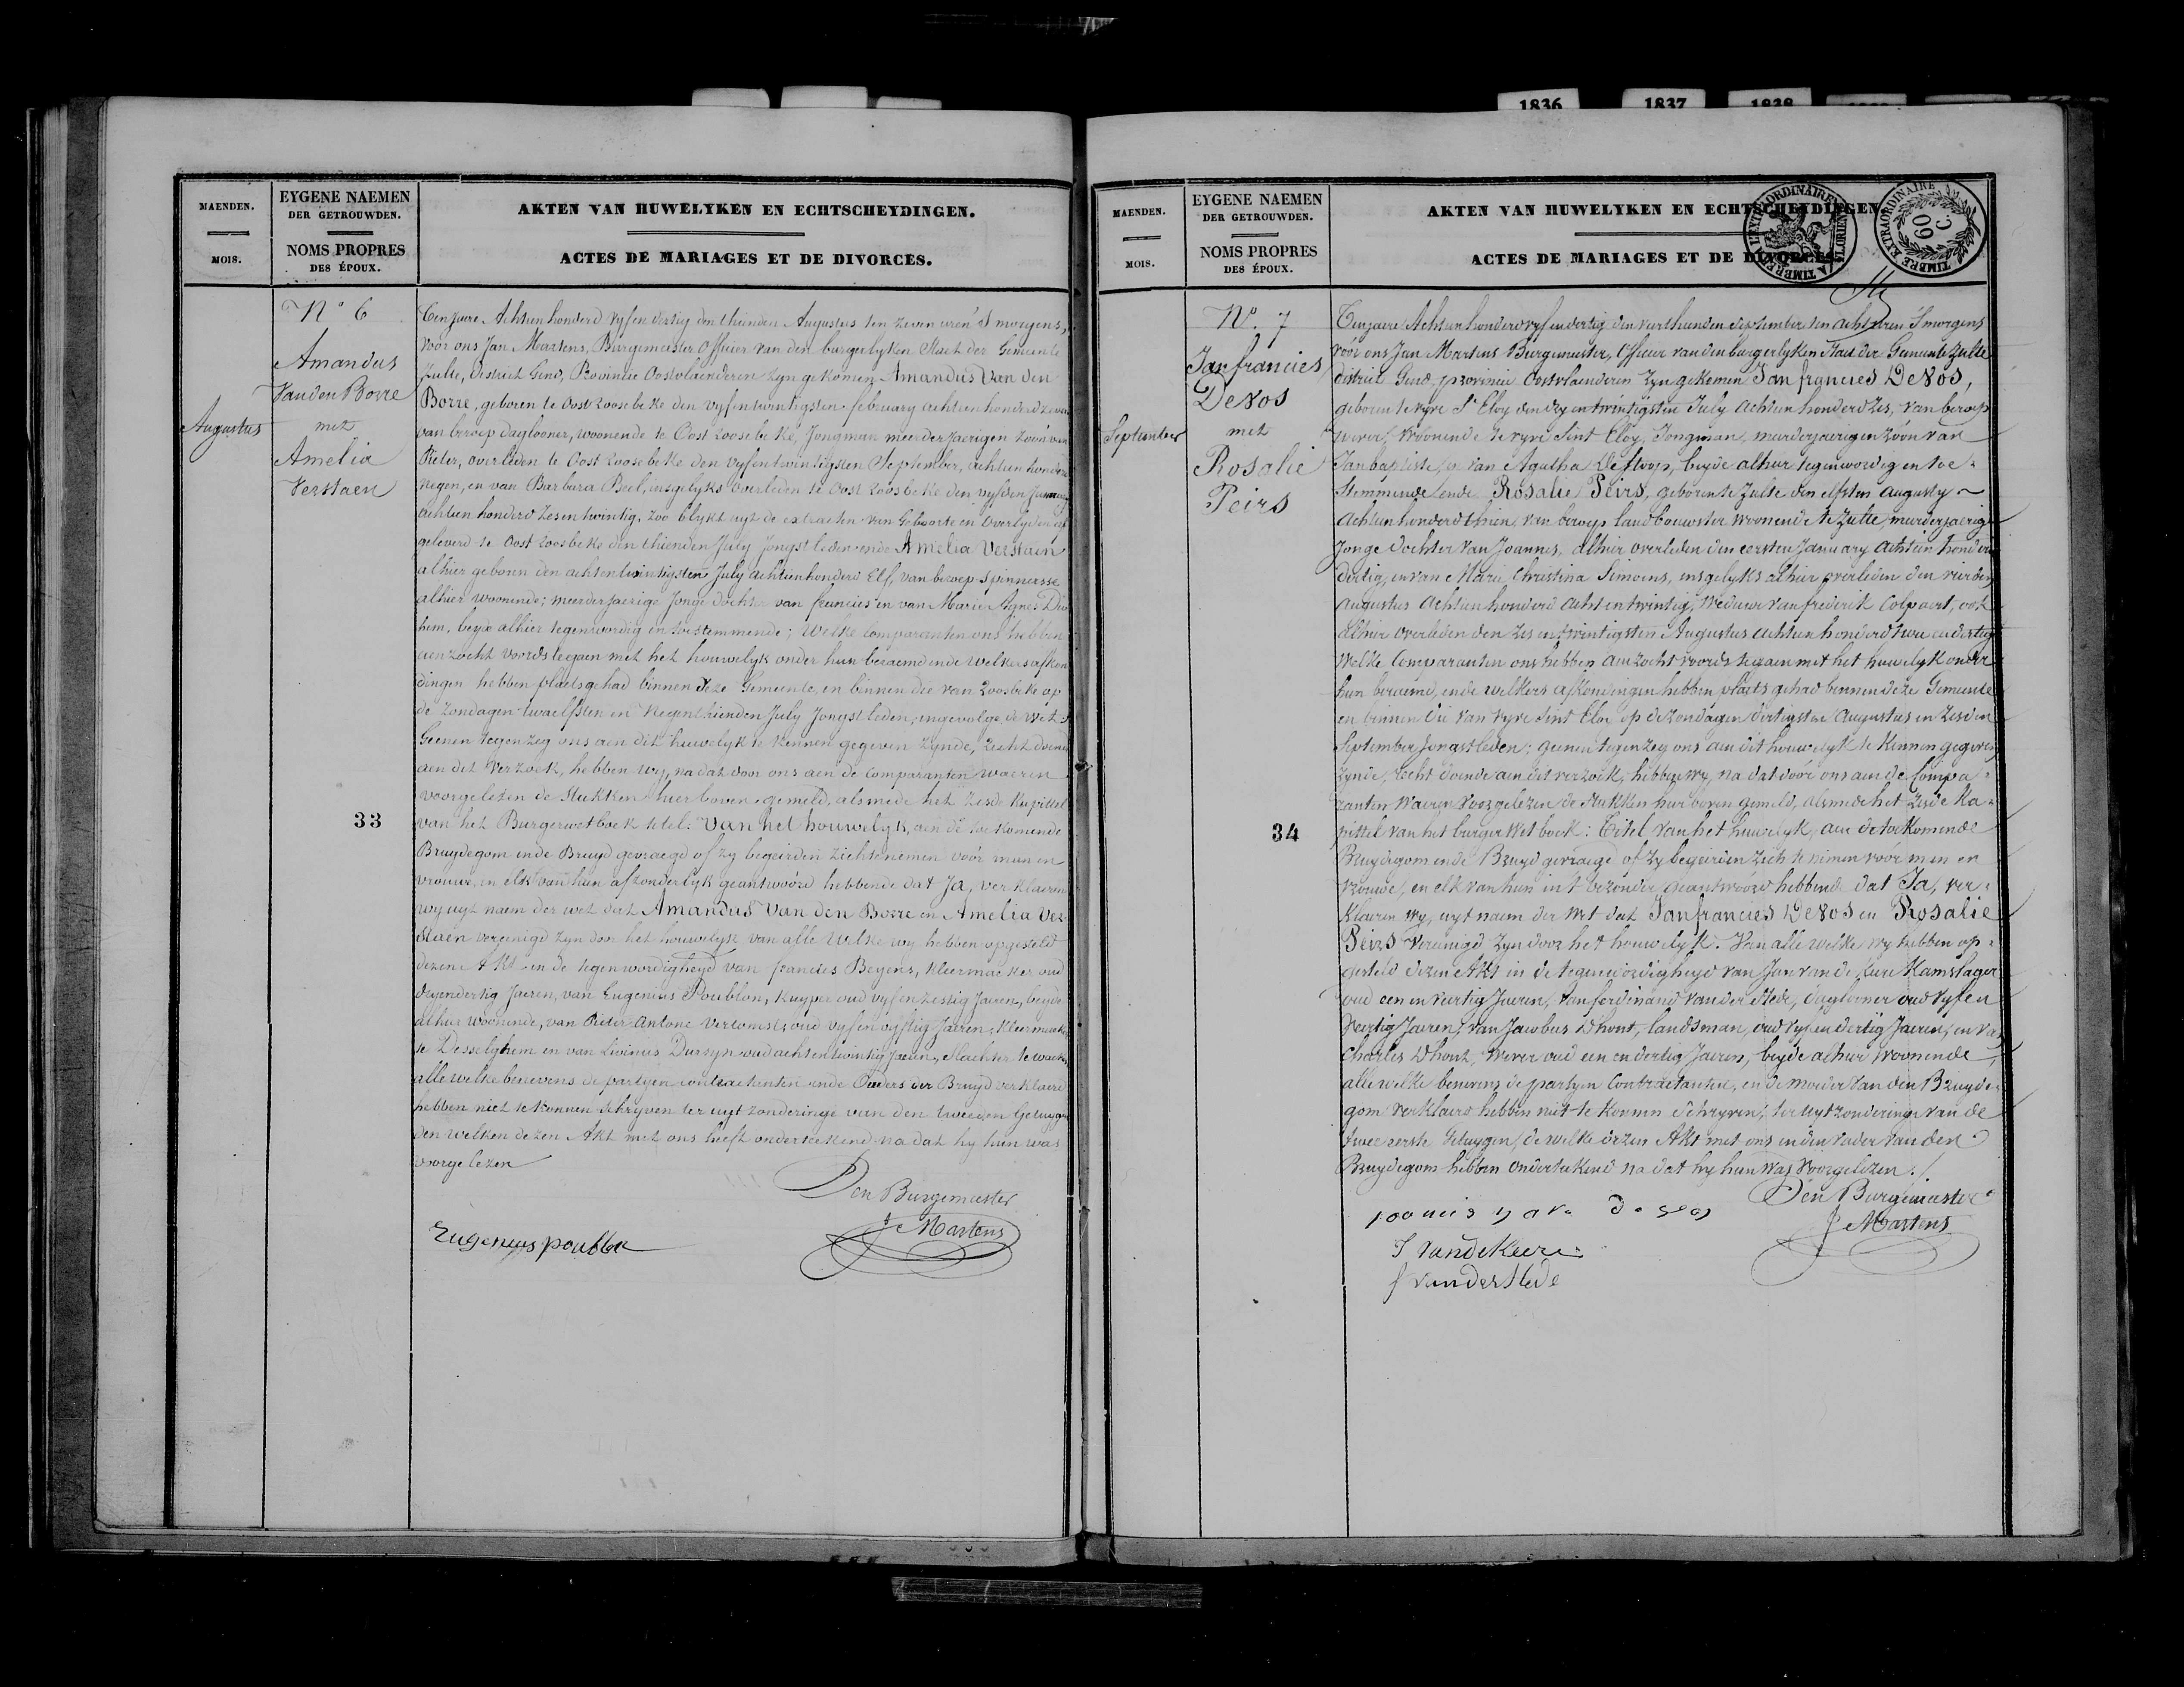 1836
1837
1838
MAENDEN.
MOIS.
EYGENE NAEMEN
DER GETROUWDEN.
NOMS PROPRES
DES ÉPOUX.
AKTEN VAN HUWELYKEN EN ECHTSCHEYDINGEN.
ACTES DE MARIAGES ET DE DIVORCES.
Augustus
N° 6
Amandus
Vanden Borre
met
Amelia
Verstaen
33
Tenjaere Achtien honderd vyfen dertig den thienden Augustus ten zeven uren S'morgens,
voor ons Jan Martens, Burgemeester Officier van den burgerlyken Staet der Gemeente
Zulte, district Gend, Provincie Oostvlaenderen zyn gekomen Amandus Van den
Borre, geboren te Oost Roosebeke den vyfentwintigsten february achtien honderd zeven
van beroep daglooner, woonende te Oost Roosebeke, Jongman meerderjaerigen zoon van
Pieter, overleden te Oost Roosebeke den vyfentwintigsten September, achtien honderd
negen, en van Barbara Beel, insgelyks overleden te Oost Roosbeke den vyfden January
achtien honderd zesentwintig, zoo blykt uyt de extracten van Geboorte en Overlyden
geleverd te Oost Roosbeke den thienden July Jongstleden ende Amelia Verstaen
alhier geboren den achtentwintigsten July achtienhonderd Elf, van beroep Spinnersse
alhier woonende; meerderjaerige Jonge dochter van francies en van Marie Agnes
hem, beyde alhier tegenwordig en toestemmende; Welke Comparanten ons hebben
aenzocht voords tegaen met het houwelyk onder hun beraemd ende welkers afkon
dingen hebben plaetsgehad binnen deze Gemeente, en binnen die van Roosbeke op
de Zondagen twaelfsten en Negenthienden July Jongstleden, ingevolge de Wet
Geenen tegenzeg ons aen dit huwelyk te kennen gegeven zynde, recht doende
aen dit verzoek, hebben wy, na dat door ons aen de comparanten waeren
voorgelezen de Stukken hier boven gemeld, alsmede het zesde kapittel
van het Burgerwetboek tetel: Van het houwelyk, aen de toekomende
Bruydegom ende Bruyd gevraegd of zy begeirden zich tenemen voor man en
vrouwe, en elk van hun afzonderlyk geantwoord hebbende dat Ja, verklaeren
wy uyt naem der wet dat Amandus Van den Borre en Amelia Ver
staen vereenigd zyn door het houwelyk van alle welke wy hebben opgesteld
dezen Akt in de tegenwordigheyd van francies Beyens, kleermaeker oud
dryendertig Jaeren, van Eugenius Poublon, kuyper oud vyfenzestig Jaeren, beyde
alhier woonende, van Pieter Antone Vertomst, oud vyfenvyftig Jaeren, kleermaeker
te Desselghem en van Livinus Dursyn oud achtentwintig Jaeren, Slachter te
alle welke benevens de partyen contractanten ende Ouders der Bruyd verklaerd
hebben niet te konnen schryven ter uytzonderinge van den tweeden Getuygen
den welken dezen Akt met ons heeft onderteekend na dat hy hun was
voorgelezen
Den Burgemeester
J Martens
Eugenius poublon
MAENDEN.
MOIS.
EYGENE NAEMEN
DER GETROUWDEN.
NOMS PROPRES
DES ÉPOUX.
AKTEN VAN HUWELYKEN EN ECHTSCHEYDINGEN
ACTES DE MARIAGES ET DE DIVORCES.
TIMBRE EXTRAORDINAIRE
60
C
September
N°. 7
Janfrancies
DeVos
met
Rosalie
Peirs
34
Tenjaere Achtien honderd vyf en dertig den veerthienden September ten acht uren S'morgens
vóór ons Jan Martens Burgemeester, Officier van den burgerlyken Staet der Gemeente Zulte
district Gend provincie Oostvlaenderen zyn gekomen Janfrancies DeVos,
geboren te vyve St Eloy den dry en twintigsten July achtien honderd zes, van beroep
wever, woonende te vyve Sint Eloy, Jongman, meerderjaerigen zóón van
Janbaptiste, en van Agatha Destoop, beyde alhier tegenwordig en toe-
stemmende, ende Rosalie Peirs, geboren te Zulte den elfsten augusty
achtien honderd thien, van beroep landbouwster woonende te Zulte, meerderjaerige
Jonge dochter van Joannes, alhier overleden den eersten January achtien honderd
dertig, en van Marie Christina Simoens, insgelyks alhier overleden den vierden
augustus achtien honderd acht en twintig, Weduwe van frederik Colpaert, ook
alhier overleden den zes en twintigsten Augustus achtien honderd twee en dertig
Welke Comparanten ons hebben aenzocht voords tegaen met het huwelyk onder
hun beraemd, ende welkers afkondingen hebben plaets gehad binnen deze Gemeente
en binnen die van vyve Sint Eloe op de zondagen dertigsten Augustus en zesden
September Jongstleden; geenen tegenzeg ons aen dit houwelyk te kennen gegeven
zynde, recht doende aen dit verzoek, hebben wy, na dat dóór ons aen de Compa-
ranten waeren voorgelezen de Stukken hier boven gemeld, alsmede het zesde ka-
pittel van het burger Wet boek: Titel van het huwelyk, aen de toekomende
Bruydegom ende Bruyd gevraegd of zy begeirden zich te nemen vóór man en
vrouwe, en elk van hun in't bezonder geantwóórd hebbende dat Ja, ver-
klaeren wy, uyt naem der Wet dat Janfrancies DeVos en Rosalie
Peirs Vereenigd zyn door het houwelyk. Van alle welke wy hebben op-
gesteld dezen Akt in de tegenwoordigheyd van Jan van de Keere Kamslager
oud een en veertig Jaeren, van ferdinand vander Stede, daglooner oud vyf en
veertig Jaeren, van Jacobus Dhont, landsman, oud vyf en dertig Jaeren, en van
Charles Dhont, wever oud een en dertig Jaeren, beyde alhier woonende,
alle welke benevens de partyen Contractanten, en de moeder van den Bruyde-
gom verklaerd hebben niet te konnen Schryven, ter uytzonderinge van de
twee eerste Getuygen, de welke dezen Akt met ons en den vader van den
Bruydegom hebben onderteekend na dat hy hun was voorgelezen./.
Den Burgemeester
J Martens
J VandeKeere
f vanderstede